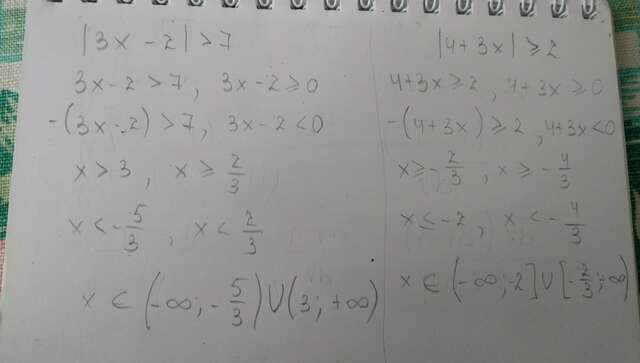 |3x - 2| > 7
3x - 2 > 7, 3x - 2 ≥ 0
-(3x - 2) > 7, 3x - 2 < 0
x > 3, x ≥ 2/3
x < -5/3, x < 2/3
x ∈ (-∞; -5/3) ∪ (3; +∞)
|4 + 3x| ≥ 2
4 + 3x ≥ 2, 4 + 3x ≥ 0
-(4 + 3x) ≥ 2, 4 + 3x < 0
x ≥ -2/3, x ≥ -4/3
x ≤ -2, x < -4/3
x ∈ (-∞; -2] ∪ [-2/3; +∞)